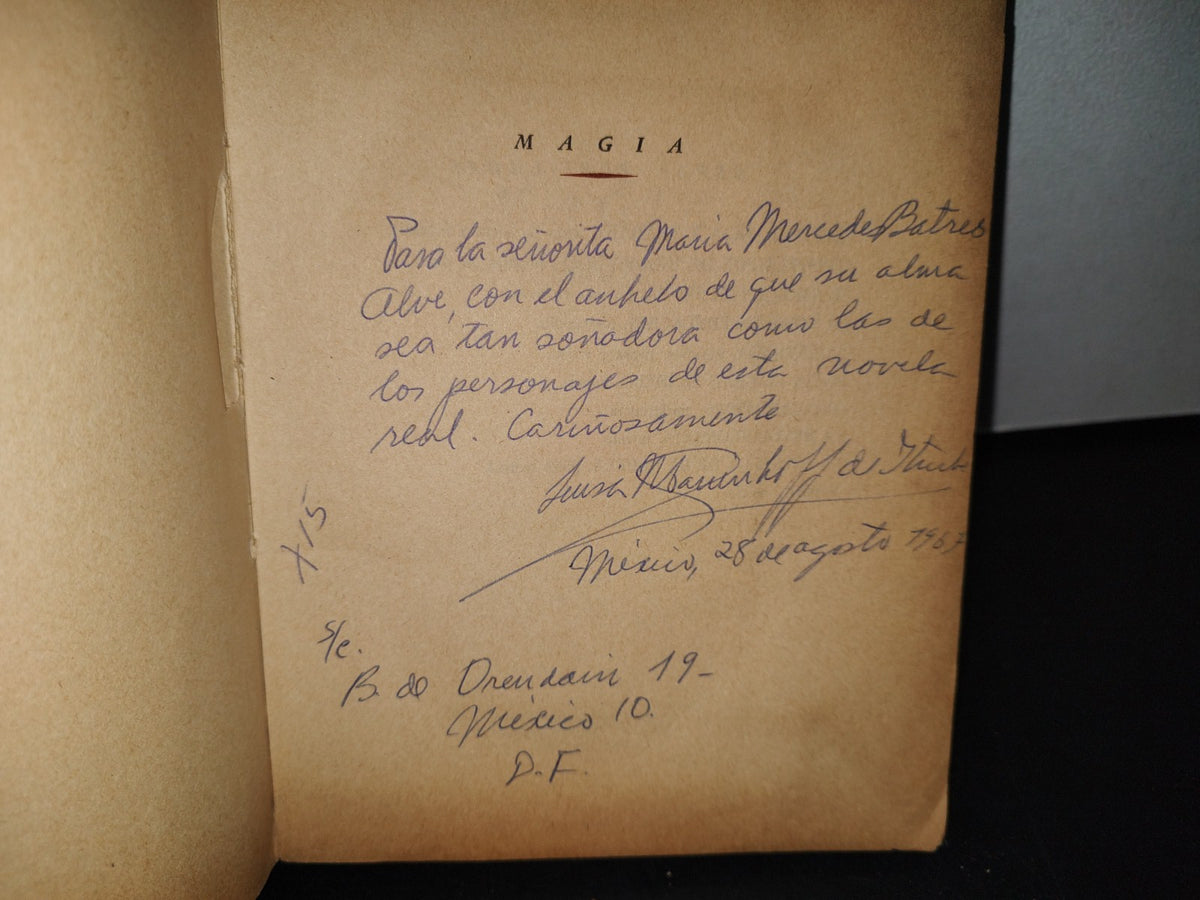 MAGIA
Para la señorita Maria Mercedes Batres
Alve, con el anhelo de que su alma
sea tan soñadora como las de
los personajes de esta novela
real. Cariñosamente
Luisa de
México, 28 de agosto
X15
S/c.
B. de Orendain 19-
México 10.
D.F.